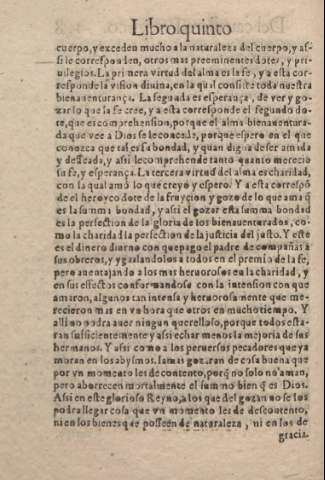 Libro quinto
cuerpo, y exceden mucho a la naturaleza del cuerpo, y as-
si le correspon len, otros mas preeminentes dotes, y pri-
uilegios. La primera virtud del alma es la fe, y a esta cor-
responde la vision diuina, en la qual consiste toda nuestra
bienauenturança. La segunda es esperança, de ver y go-
zar lo que la fe cree, y a esta corresponde el segundo do-
te, que es comprehension, porque el alma bienauentura-
da que vee a Dios se le concede, porque espero en el que
conozca que tal es sa bondad, y quan digna de ser amida
y desseada, y assi le comprehende tanto quanto merecio
su fe, y esperança. La tercera virtud del alma es charidad,
con la qual amò lo que creyò y espero. Y a esta correspõ
de el heroyco dote de la fruycion y gozo de lo que ama q̃
es la summa bondad, y assi el gozar esta summa bondad
es la perfection de la gloria de los bienauenturados, co-
mo la charidad la perfection de la justicia del justo. Y este
es el dinero diurno con que pago el padre de compañas à
sus obreros, y ygualandolos a todos en el premio de la fe,
pero auentajando a los mas heruorosos en la charidad, y
en sus effectos conformandose con la intension con que
amaron, algunos tan intensa y heruorosamente que me-
recieron mas en vn hora que otros en mucho tiempo. Y
alli no podra auer ningun querelloso, porque todos esta-
ran sufficientemente y assi echar menos la mejoria de sus
hermanos. Y assi como a los peruersos pecadores que ya
moran en los abysmos, jamas gozaran de cosa buena que
por vn momento les de contento, porq̃ no solo no aman,
pero aborrecen mortalmente el summo bien q̃ es Dios.
Assi en este glorioso Reyno, a los que del gozan no se los
podra llegar cosa que vn momento les de descontento,
ni en los bienes que posseen de naturaleza, ni en los de
gracia.